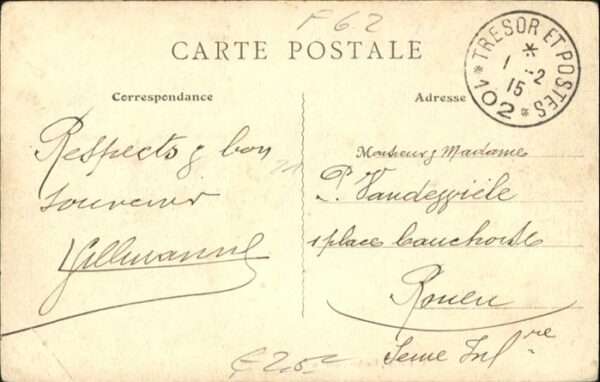 F 62
CARTE POSTALE
* TRESOR ET POSTES *
*
1 -2
15
102
Correspondance
Adresse
Respects & bon
souvenir
Monsieur & Madame
P.
1 place Cauchoise
Rouen
Seine Infre